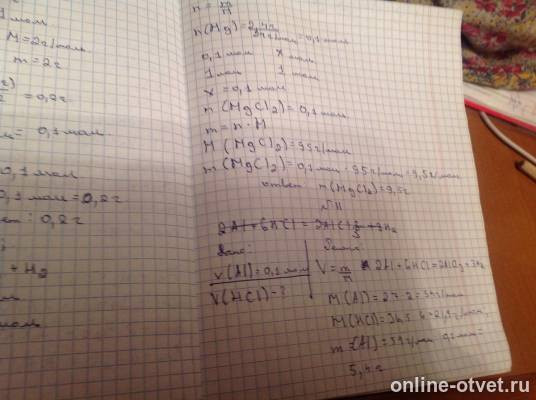 1 моль
M=2г/моль
m=2г
=0,2г
=0,1 моль
0,1 моль
0,1 моль=0,2г
ответ: 0,2г
+ H2
моль
n=m/M
n(Mg)=2,4г/24г/моль=0,1 моль
0,1 моль x моль
1 моль 1 моль
x=0,1 моль
n(MgCl2)=0,1 моль
m=n·M
M(MgCl2)=95г/моль
m(MgCl2)=0,1 моль·95г/моль=9,5г/моль
ответ m(MgCl2)=9,5г
2Al+6HCl=2AlCl3+3H2
Дано: Реше
ν(Al)=0,1 моль V=m/M 2Al+6HCl=2AlCl3+3H2
V(HCl)-?
M(Al)=27·2=54г/моль
M(HCl)=36,5·6=219г/моль
m(Al)=54г/моль·0,1 моль=
5,4г
online-otvet.ru